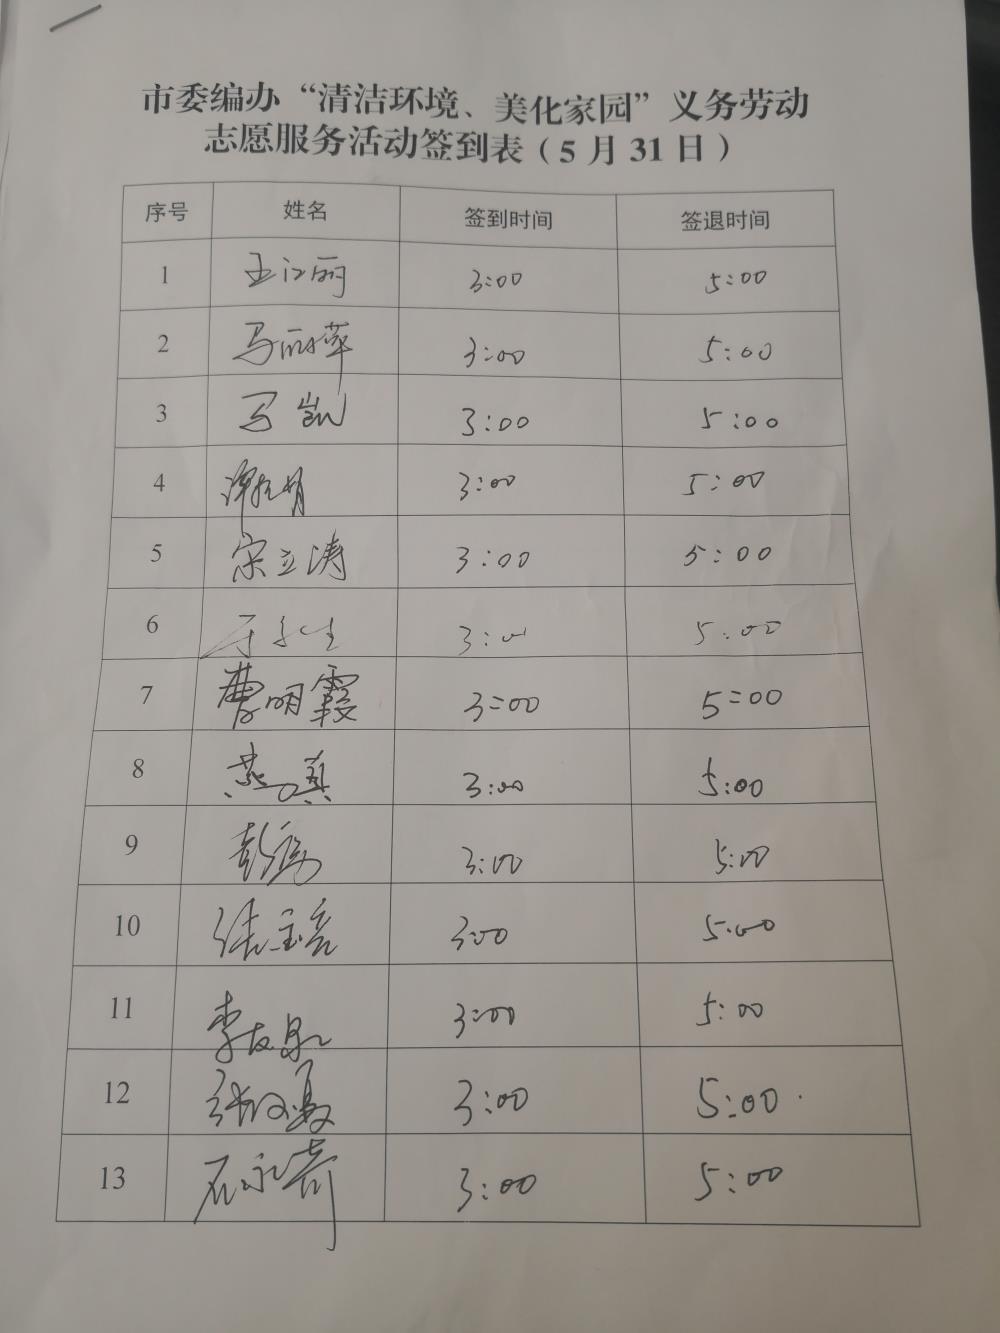 市委编办“清洁环境、美化家园”义务劳动
志愿服务活动签到表（5月31日）
序号 姓名 签到时间 签退时间
1 王江丽 3:00 5:00
2 马丽萍 3:00 5:00
3 马凯 3:00 5:00
4 3:00 5:00
5 宋立涛 3:00 5:00
6 3:00 5:00
7 曹明霞 3:00 5:00
8 燕 3:00 5:00
9 彭 3:00 5:00
10 张宝亮 3:00 5:00
11 李 3:00 5:00
12 张 3:00 5:00
13 石永奇 3:00 5:00